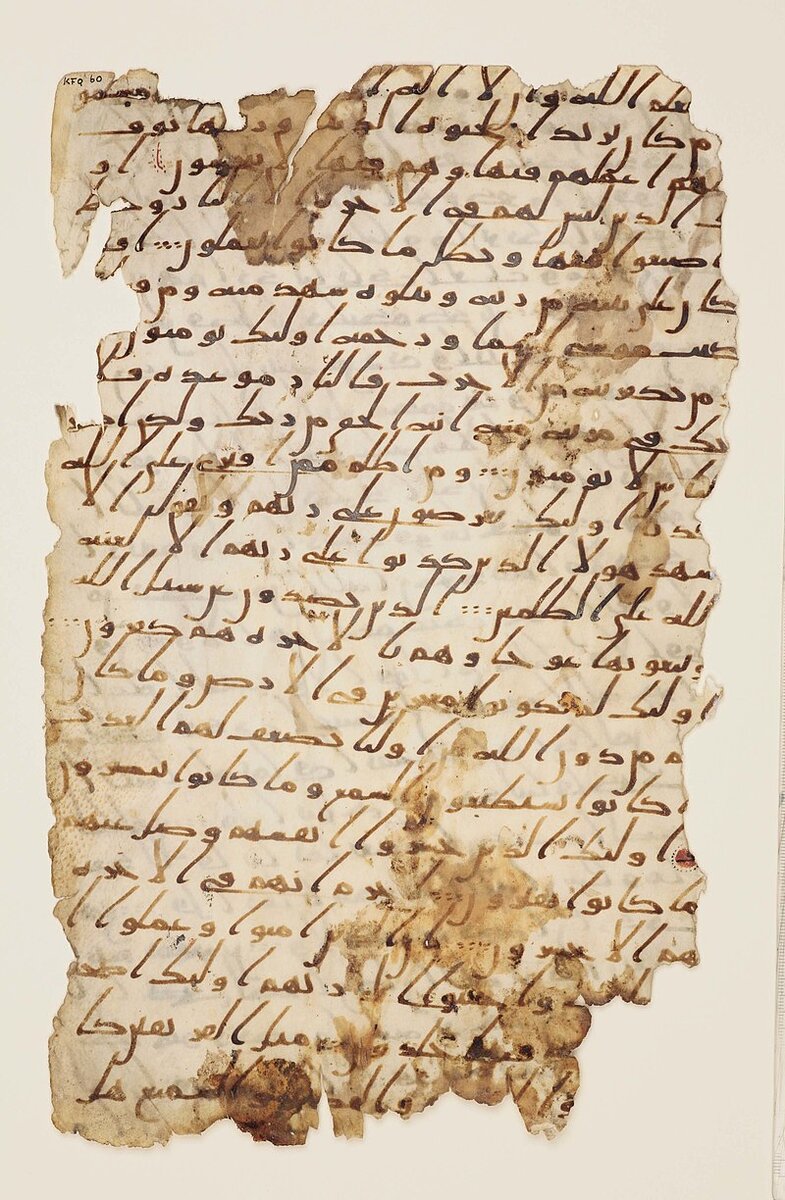 KFQ 60
علم الله وان لا اله مسلمو
ن من كان يريد الحيوة الدنيا وزينتها نوف
اليهم اعملهم فيها وهم فيها لا يبخسون او
الذين ليس لهم في الاخرة النار وحبط
ما صنعوا فيها وبطل ما كانوا يعملون اف
كان على بينة من ربه ويتلوه شهد منه ومن ق
كتب موسى اماما ورحمة اولئك يومنون
من يكفر به من الاحزب فالنار موعده فلا
تك في مرية منه انه الحق من ربك ولكن اكثر
الناس لا يومنون ومن اظلم ممن افترى على الله
كذبا اولئك يعرضون على ربهم ويقول الا
شهد هولا الذين كذبوا على ربهم الا لعنة
الله على الظلمين الذين يصدون عن سبيل الله
ويبغونها عوجا وهم بالاخرة هم كفرون
اولئك لم يكونوا معجزين في الارض وما كان
لهم من دون الله من اوليا يضعف لهم العذب
ما كانوا يستطيعون السمع وما كانوا يبصرون
اولئك الذين خسروا انفسهم وضل عنهم
ما كانوا يفترون لا جرم انهم في الاخرة
هم الاخسرون ان الذين امنوا وعملوا ا
واخبتوا الى ربهم اولئك اصحب
هم فيها خلدون مثل الفريقين كا
والبصير والسميع هل